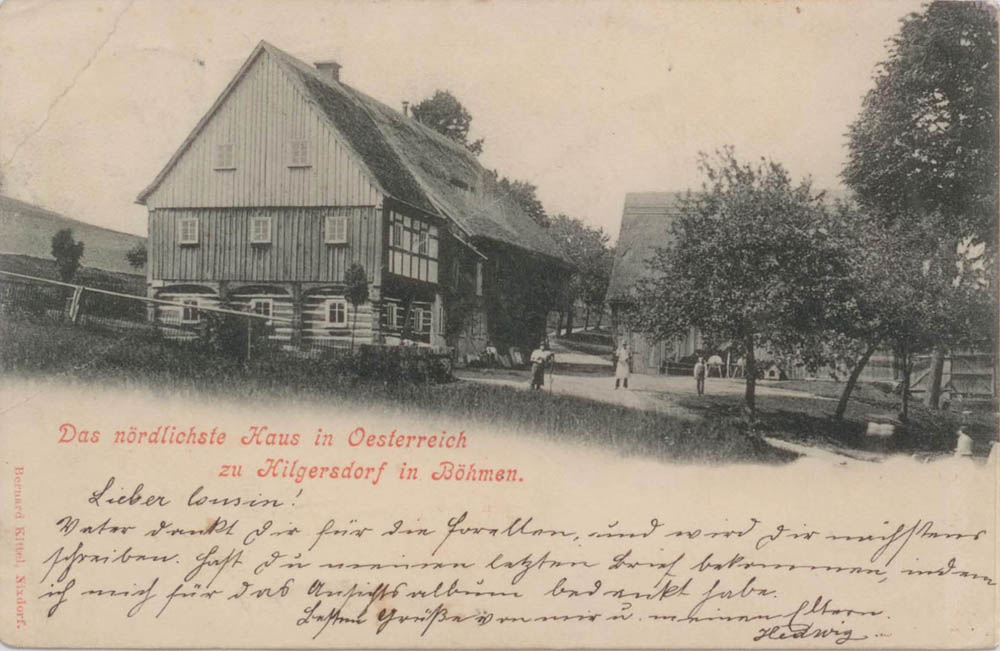 Das nördlichste Haus in Oesterreich
zu Hilgersdorf in Böhmen.
Bernard Kittel, Nixdorf.
Lieber Cousin!
Vater dankt Dir für die Forellen, und wird Dir nächstens
schreiben. Hast Du meinen letzten Brief bekommen, indem
ich mich für das Ansichtsalbum bedankt habe.
Besten Grüße von mir u. meinen Eltern.
Hedwig